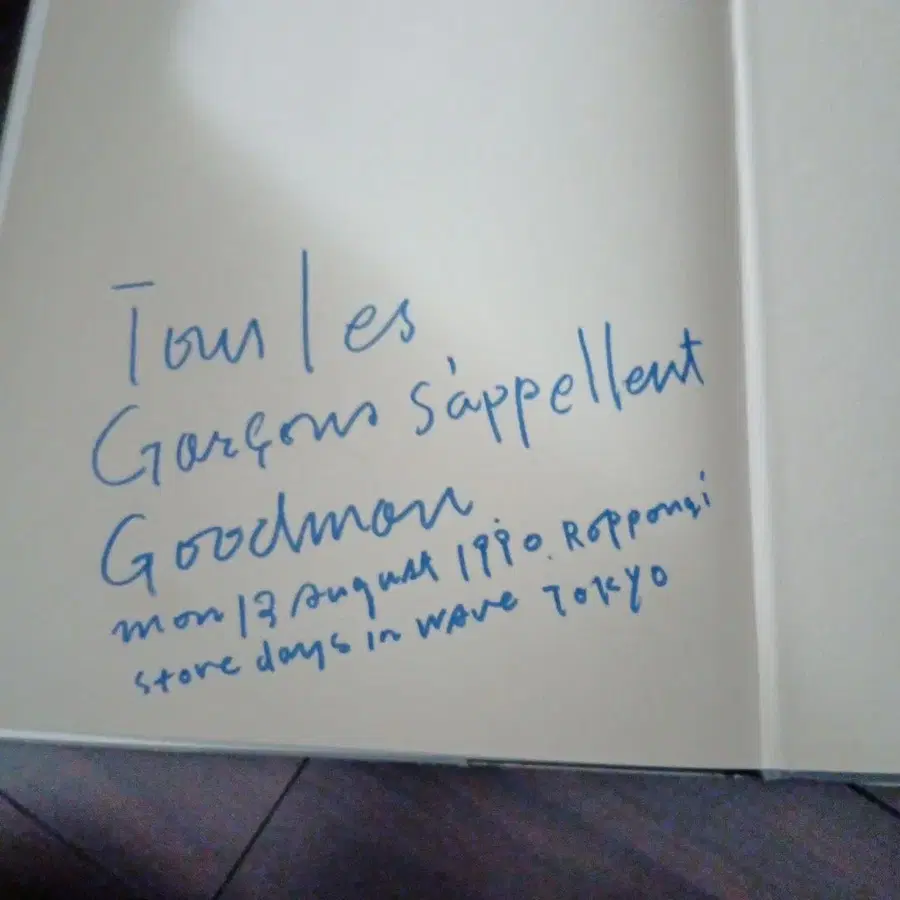 Tous les
Garçons s'appellent
Goodman
mon 13 August 1990. Roppongi
store days in WAVE TOKYO